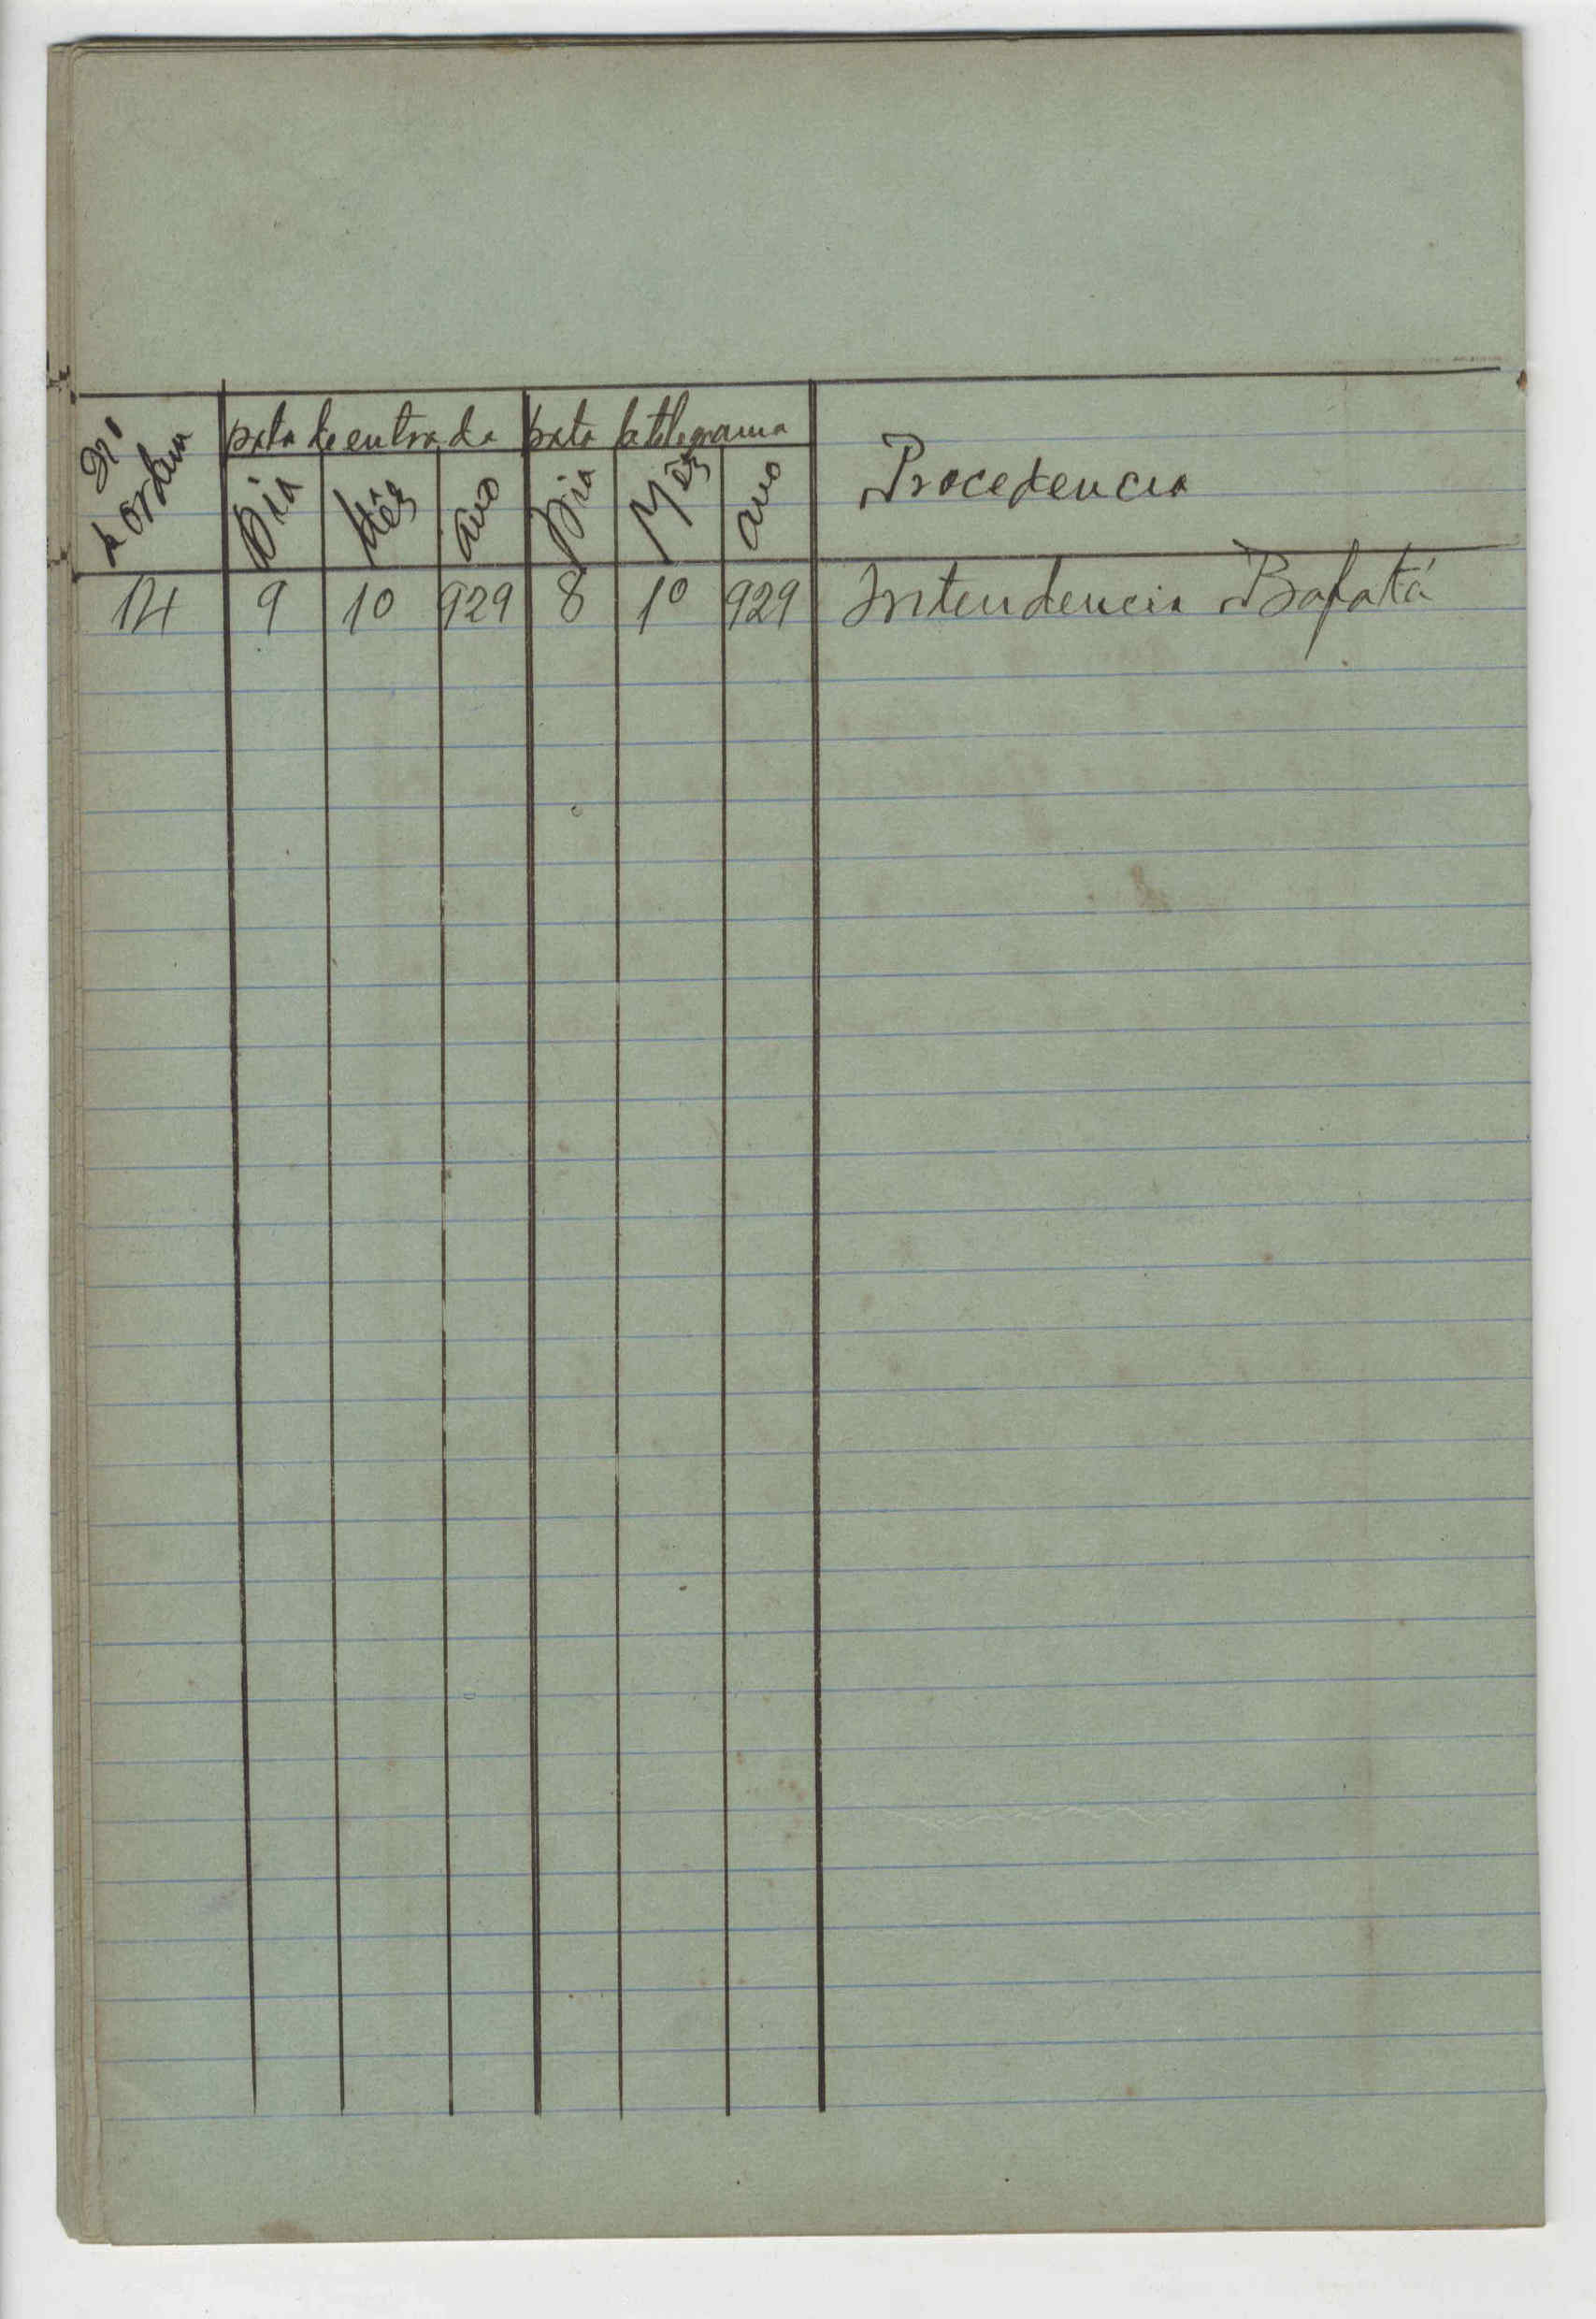 Nº de Ordem
Data de entrada Data de telegrama
Procedencia
Dia Mês ano Dia Mês ano
14 9 10 929 8 10 929 Intendencia Bafatá